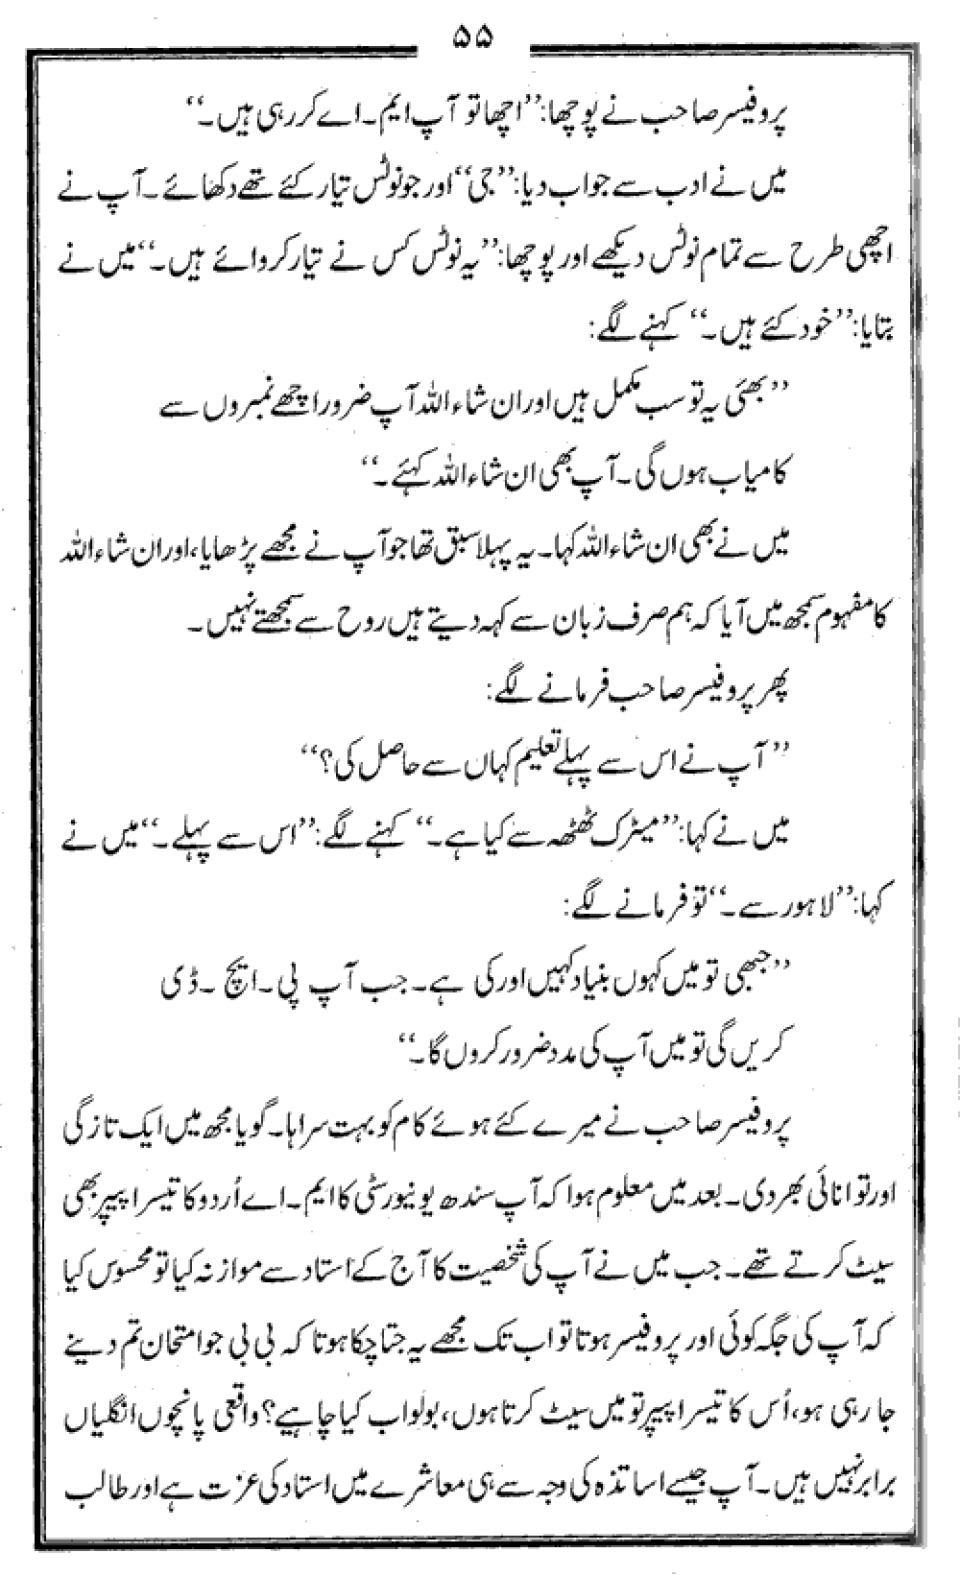 ۵۵
پروفیسر صاحب نے پوچھا: ’’اچھا تو آپ ایم۔اے کر رہی ہیں۔‘‘
میں نے ادب سے جواب دیا: ’’جی‘‘ اور جو نوٹس تیار کئے تھے دکھائے۔ آپ نے
اچھی طرح سے تمام نوٹس دیکھے اور پوچھا: ’’یہ نوٹس کس نے تیار کروائے ہیں۔‘‘ میں نے
بتایا: ’’خود کئے ہیں۔‘‘ کہنے لگے:
’’بھئی یہ تو سب مکمل ہیں اور ان شاء اللہ آپ ضرور اچھے نمبروں سے
کامیاب ہوں گی۔ آپ بھی ان شاء اللہ کہئے۔‘‘
میں نے بھی ان شاء اللہ کہا۔ یہ پہلا سبق تھا جو آپ نے مجھے پڑھایا، اور ان شاء اللہ
کا مفہوم سمجھ میں آیا کہ ہم صرف زبان سے کہہ دیتے ہیں روح سے سمجھتے نہیں۔
پھر پروفیسر صاحب فرمانے لگے:
’’آپ نے اس سے پہلے تعلیم کہاں سے حاصل کی؟‘‘
میں نے کہا: ’’میٹرک ٹھٹھہ سے کیا ہے۔‘‘ کہنے لگے: ’’اس سے پہلے۔‘‘ میں نے
کہا: ’’لاہور سے۔‘‘ تو فرمانے لگے:
’’جبھی تو میں کہوں بنیاد کہیں اور کی ہے۔ جب آپ پی۔ایچ۔ڈی
کریں گی تو میں آپ کی مدد ضرور کروں گا۔‘‘
پروفیسر صاحب نے میرے کئے ہوئے کام کو بہت سراہا۔ گویا مجھ میں ایک تازگی
اور توانائی بھر دی۔ بعد میں معلوم ہوا کہ آپ سندھ یونیورسٹی کا ایم۔اے اُردو کا تیسرا پیپر بھی
سیٹ کرتے تھے۔ جب میں نے آپ کی شخصیت کا آج کے استاد سے موازنہ کیا تو محسوس کیا
کہ آپ کی جگہ کوئی اور پروفیسر ہوتا تو اب تک مجھے یہ جتا چکا ہوتا کہ بی بی جو امتحان تم دینے
جا رہی ہو، اُس کا تیسرا پیپر تو میں سیٹ کرتا ہوں، بولو اب کیا چاہیے؟ واقعی پانچوں انگلیاں
برابر نہیں ہیں۔ آپ جیسے اساتذہ کی وجہ سے ہی معاشرے میں استاد کی عزت ہے اور طالب